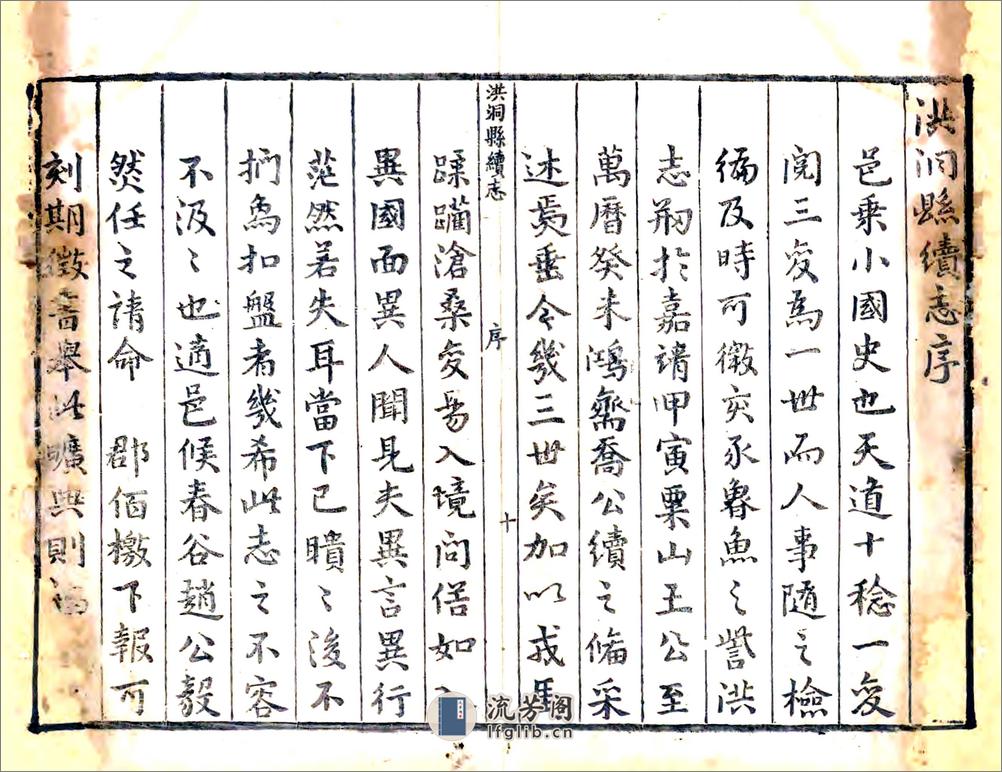 洪洞縣續志序
邑乗小國史也天道十稔一变
閱三变為一世而人事随之檢
編及時可徵亥豕魯魚之訾洪
志刱於嘉靖甲寅栗山王公至
萬曆癸未鴻齋喬公續之脩采
述焉垂今幾三世矣加以戎
洪洞縣續志
序
十
蹂躪滄桑变易入境問俗如入
異國面異人聞見夫異言異行
茫然若失耳當下已瞶〻後不
捫為扣盤者幾希此志之不容
不汲〻也適邑候春谷趙公毅
然任之請命 郡佰檄下報可
刻期徵書舉此曠典則
流芳阁
lfglib.cn